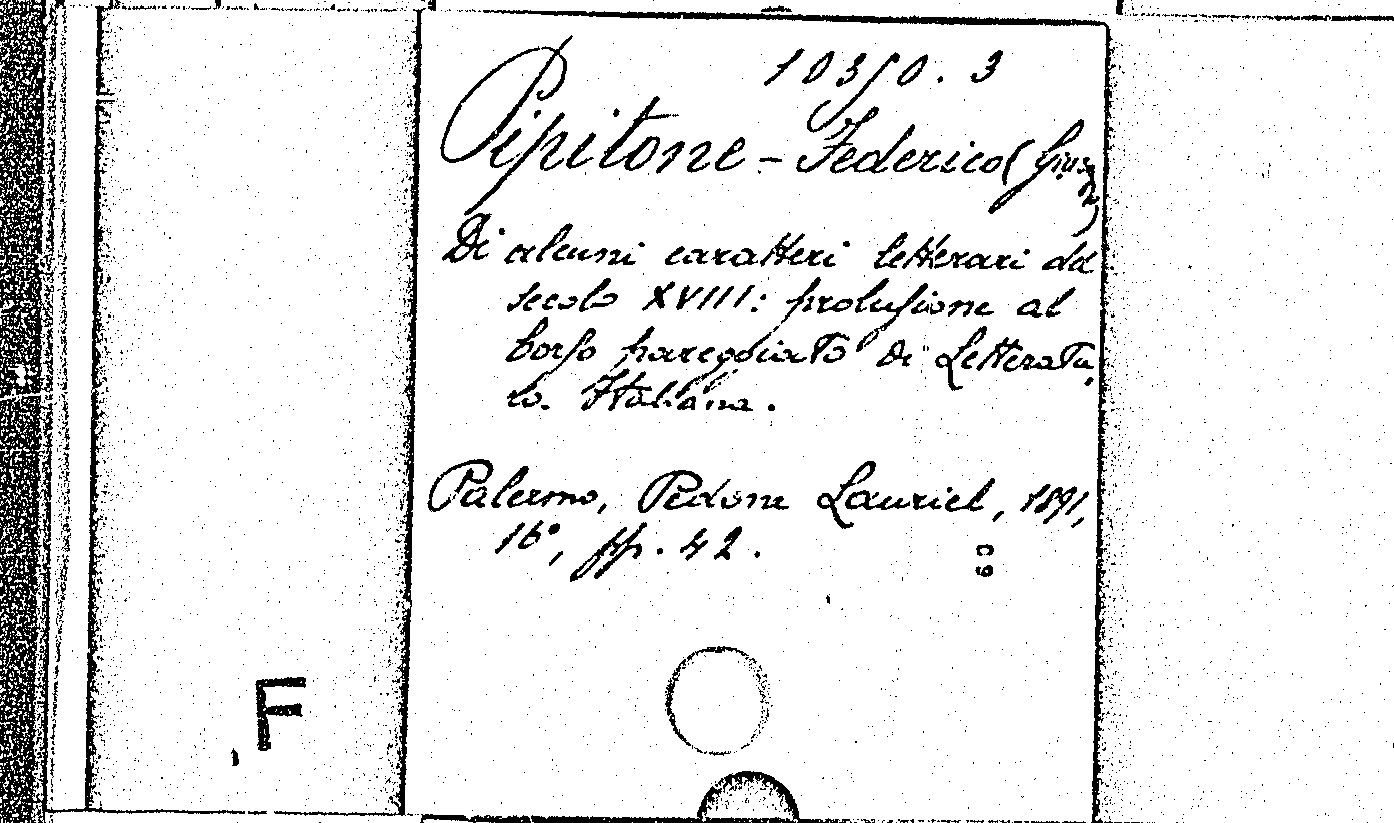 10350.3
Pipitone - Federico (Giuseppe)
Di alcuni caratteri letterari del
secolo XVIII: prolusione al
Corso pareggiato di Letteratu,
ra. Italiana.
Palermo, Pedone Lauriel, 1891,
16°, pp. 42.
F